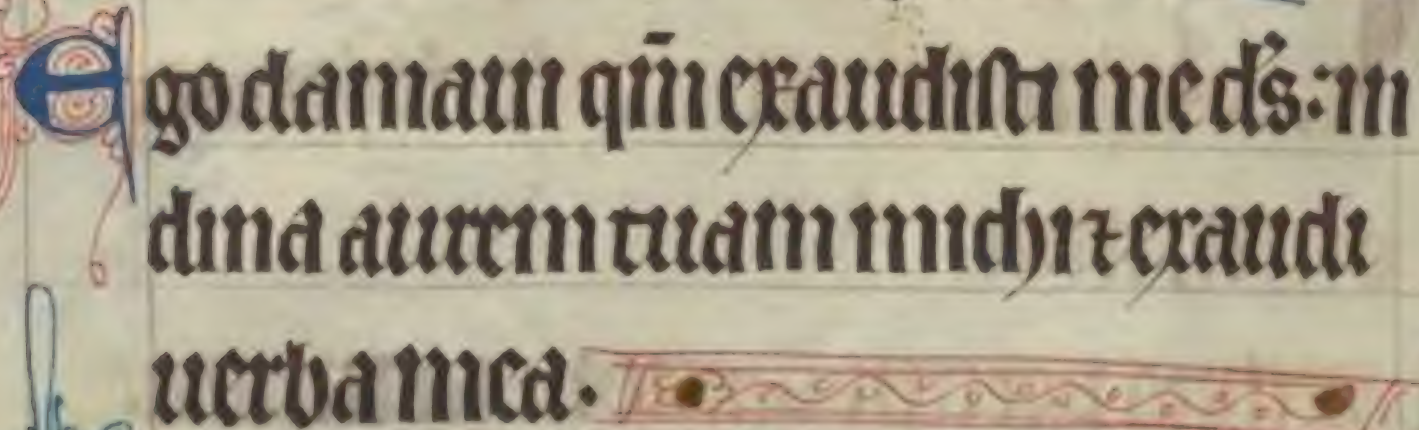 Ego clamaui qm̄ exaudisti me ds̄: in
clina aurem tuam michi ⁊ exaudi
uerba mea.